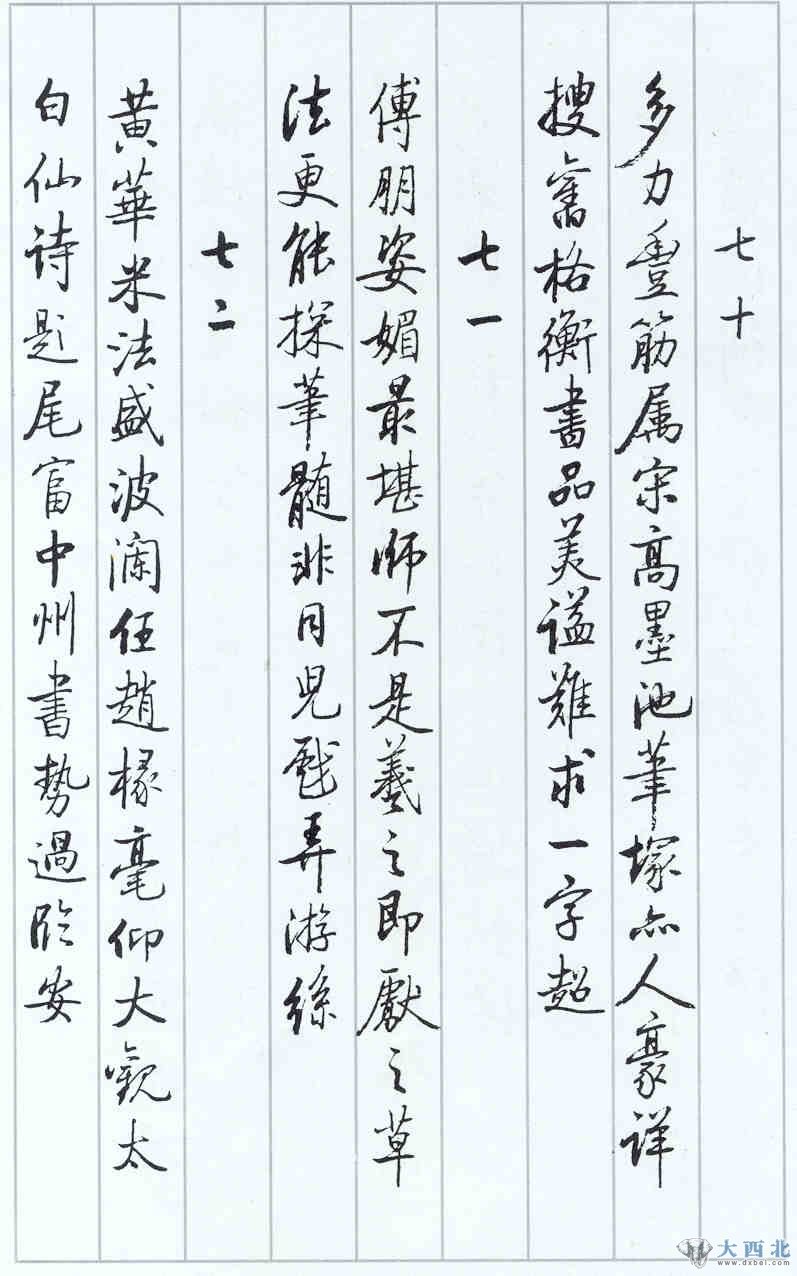 七十
多力豐筋属宋高墨池筆塚亦人豪详
搜舊格衡書品美谥難求一字超
七一
傅朋姿媚最堪师不是羲之即獻之草
法更能探筆髓非同兒戲弄游絲
七二
黄華米法盛波澜任趙椽毫仰大觀太
白仙诗题尾富中州書勢過临安
大西北
www.dxbei.com